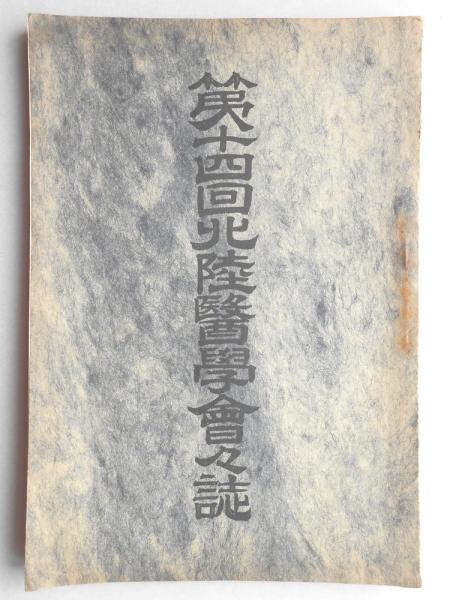 第十四回北陸醫學會々誌